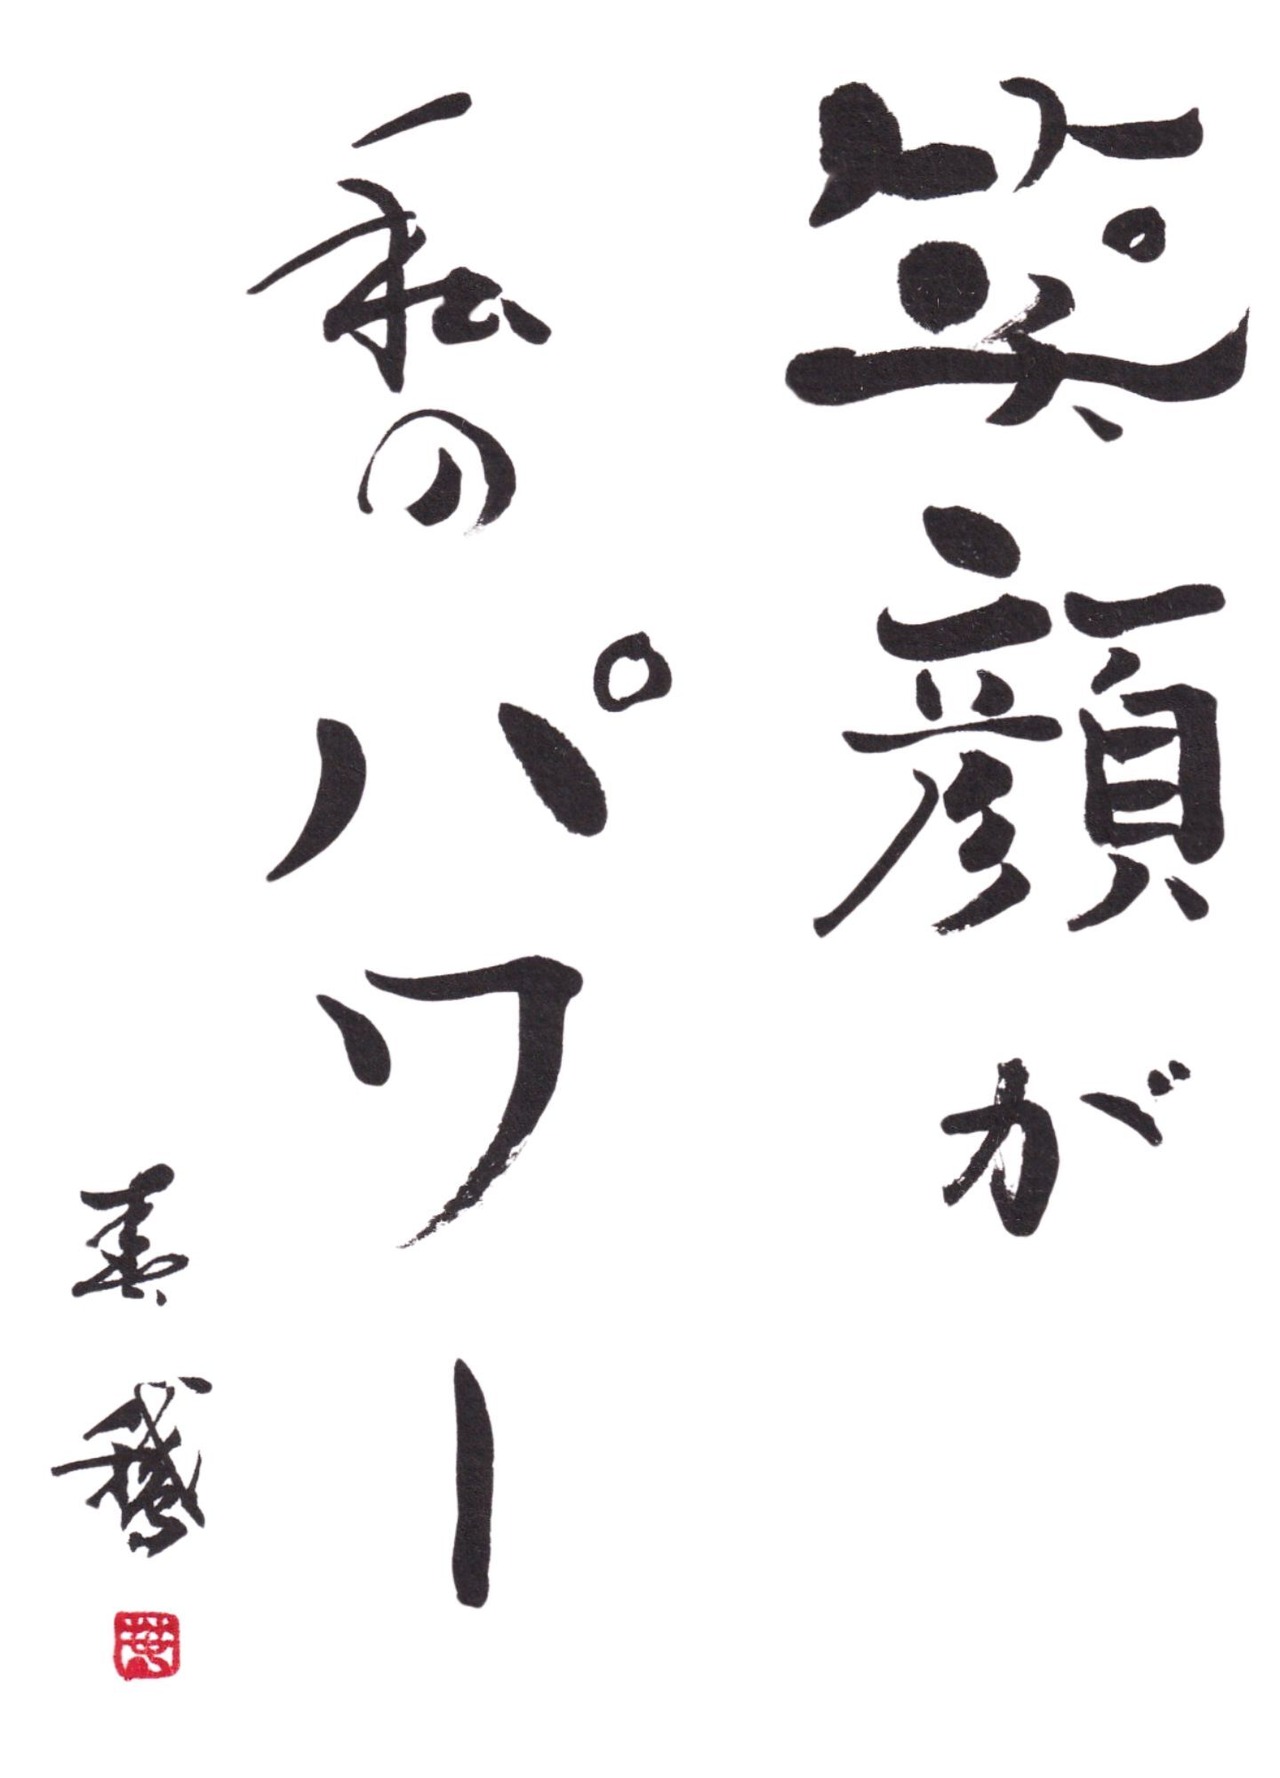 笑顔が
私のパワー